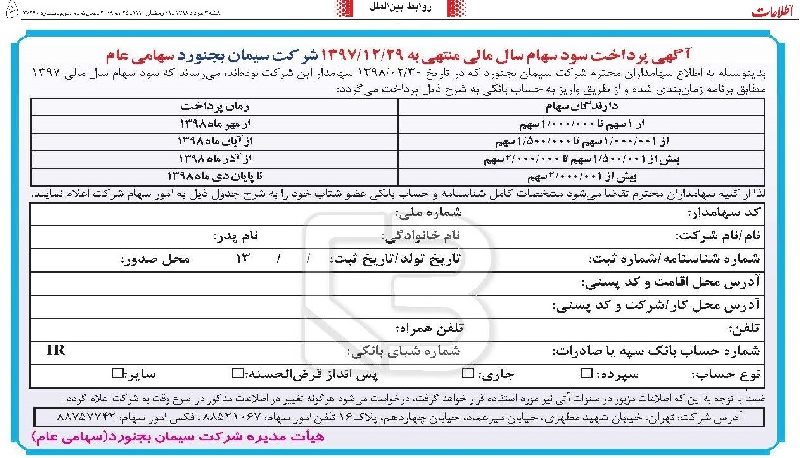 اطلاعات
روابط بین‌الملل
آگهی پرداخت سود سهام سال مالی منتهی به ۱۳۹۷/۱۲/۲۹ شرکت سیمان بجنورد سهامی عام
بدینوسیله به اطلاع سهامداران محترم شرکت سیمان بجنورد که در تاریخ ۱۳۹۸/۰۲/۳۰ سهامدار این شرکت بوده‌اند، می‌رساند که سود سهام سال مالی ۱۳۹۷
مطابق برنامه زمان‌بندی شده و از طریق واریز به حساب بانکی به شرح ذیل پرداخت می‌گردد:
دارندگان سهام زمان پرداخت
از ۱ سهم تا ۱/۰۰۰/۰۰۰ سهم از مهر ماه ۱۳۹۸
از ۱/۰۰۰/۰۰۱ سهم تا ۱/۵۰۰/۰۰۰ سهم از آبان ماه ۱۳۹۸
بیش از ۱/۵۰۰/۰۰۱ سهم تا ۲/۰۰۰/۰۰۰ سهم از آذر ماه ۱۳۹۸
بیش از ۲/۰۰۰/۰۰۱ سهم تا پایان دی ماه ۱۳۹۸
لذا از کلیه سهامداران محترم تقاضا می‌شود مشخصات کامل شناسنامه و حساب بانکی عضو شتاب خود را به شرح جدول ذیل به امور سهام شرکت اعلام نمایند.
کد سهامدار: شماره ملی:
نام/نام شرکت: نام خانوادگی: نام پدر:
شماره شناسنامه/شماره ثبت: تاریخ تولد/تاریخ ثبت: / / ۱۳ محل صدور:
آدرس محل اقامت و کد پستی:
آدرس محل کار/شرکت و کد پستی:
تلفن: تلفن همراه:
شماره حساب بانک سپه یا صادرات: شماره شبای بانکی: IR
نوع حساب: سپرده:□ جاری:□ پس انداز قرض‌الحسنه:□ سایر:□
ضمنا با توجه به این که اطلاعات مزبور در سنوات آتی نیز مورد استفاده قرار خواهد گرفت، درخواست می‌شود هرگونه تغییر در اطلاعات مذکور در اسرع وقت به شرکت اعلام گردد.
آدرس شرکت: تهران، خیابان شهید مطهری، خیابان میرعماد، خیابان چهاردهم، پلاک ۱۶ تلفن امور سهام: ۸۸۵۲۱۰۶۷ . فکس امور سهام: ۸۸۷۵۷۷۴۲
هیأت مدیره شرکت سیمان بجنورد(سهامی عام)